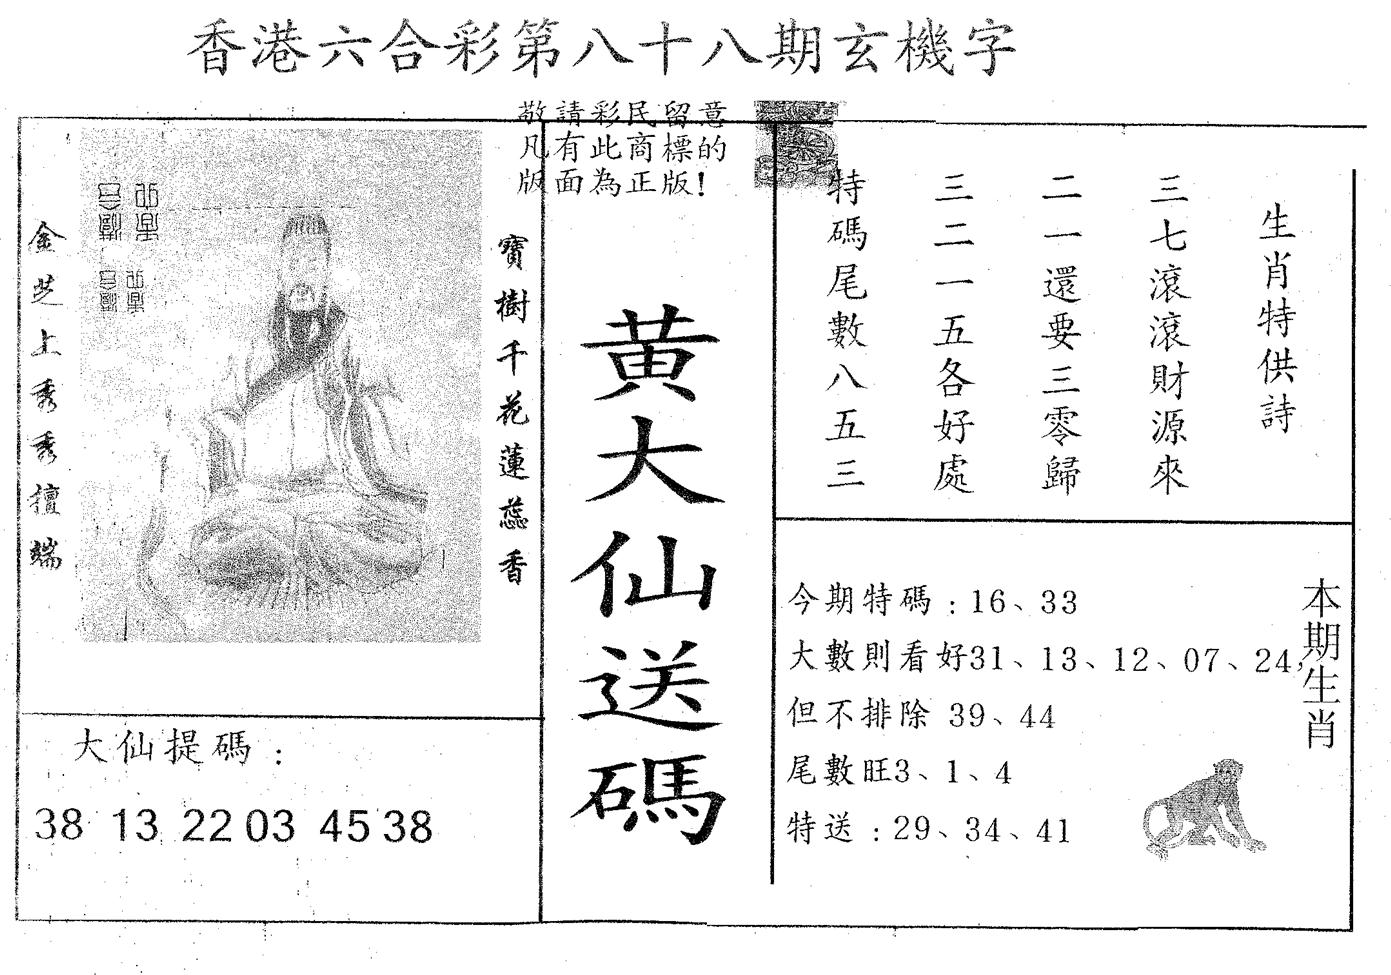 香港六合彩第八十八期玄機字
敬請彩民留意
凡有此商標的
版面為正版!
生肖特供詩
三七滾滾財源來
二一還要三零歸
三二一五各好處
特碼尾數八五三
黄大仙送碼
寶樹千花蓮蕊香
金芝上秀秀擅端
大仙提碼：
38 13 22 03 45 38
本期生肖
今期特碼：16、33
大數則看好31、13、12、07、24,
但不排除 39、44
尾數旺3、1、4
特送：29、34、41